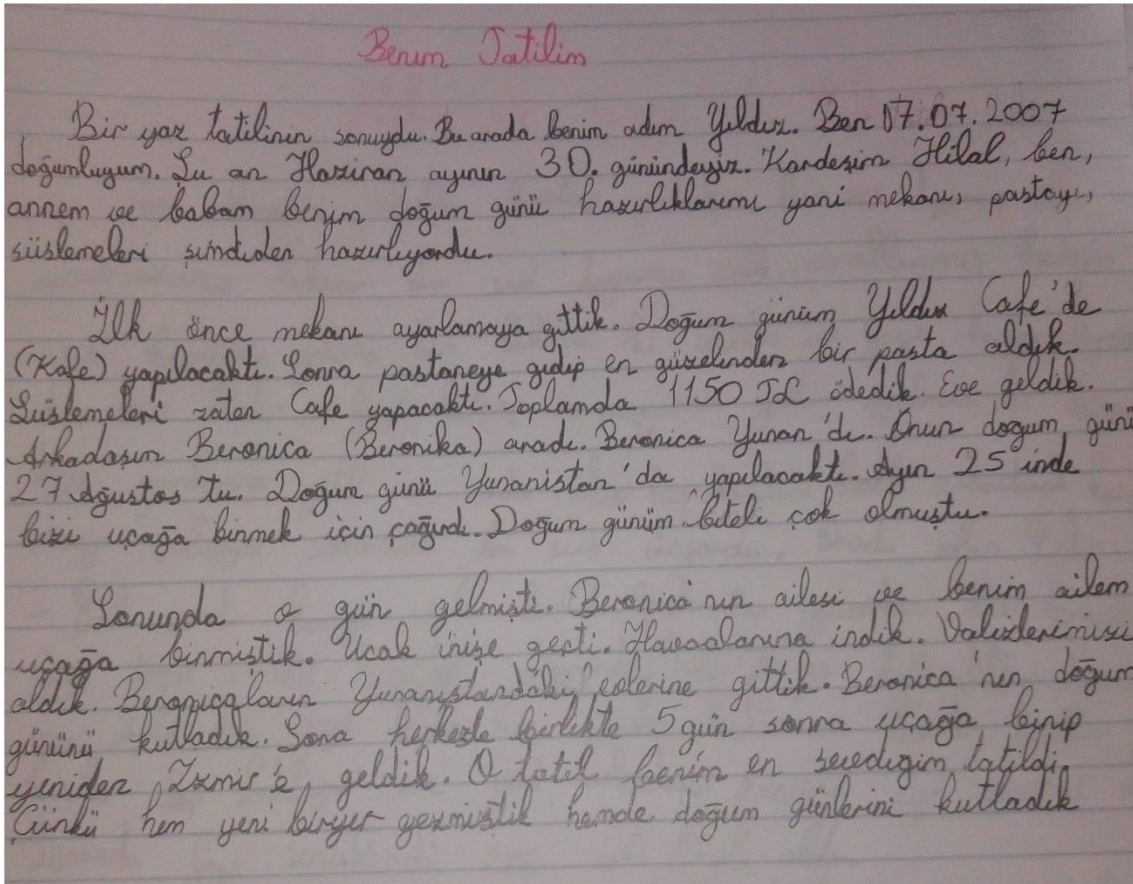 Benım Tatilim
Bir yaz tatilinin sonuydu. Bu arada benim adım Yıldız. Ben 07.07.2007
doğumluyum. Şu an Haziran ayının 30. günündeyiz. Kardeşim Hilal, ben,
annem ve babam benim doğum günü hazırlıklarımı yani mekanı, pastayı,
süslemeleri şimdiden hazırlıyordu.
İlk önce mekanı ayarlamaya gittik. Doğum günüm Yıldız Cafe'de
(Kafe) yapılacaktı. Sonra pastaneye gidip en güzelinden bir pasta aldık.
Süslemeleri zaten Cafe yapacaktı. Toplamda 1150 TL ödedik. Eve geldik.
Arkadaşım Beronica (Beronika) aradı. Beronica Yunan'dı. Onun doğum günü
27 Ağustos tu. Doğum günü Yunanistan'da yapılacaktı. Ayın 25'inde
bizi uçağa binmek için çağırdı. Doğum günüm biteli çok olmuştu.
Sonunda o gün gelmişti. Beronica'nın ailesi ve benim ailem
uçağa binmiştik. Ucak inişe geçti. Havaalanına indik. Valizlerimizi
aldık. Beronicaların Yunanıstandaki evlerine gittik. Beronica'nın doğum
gününü kutladık. Sona herkesle birlikte 5 gün sonra uçağa binip
yeniden İzmir'e geldik. O tatil benim en sevdigim tatildi.
Çünkü hem yeni biryer gezmiştik hemde doğum günlerini kutladık